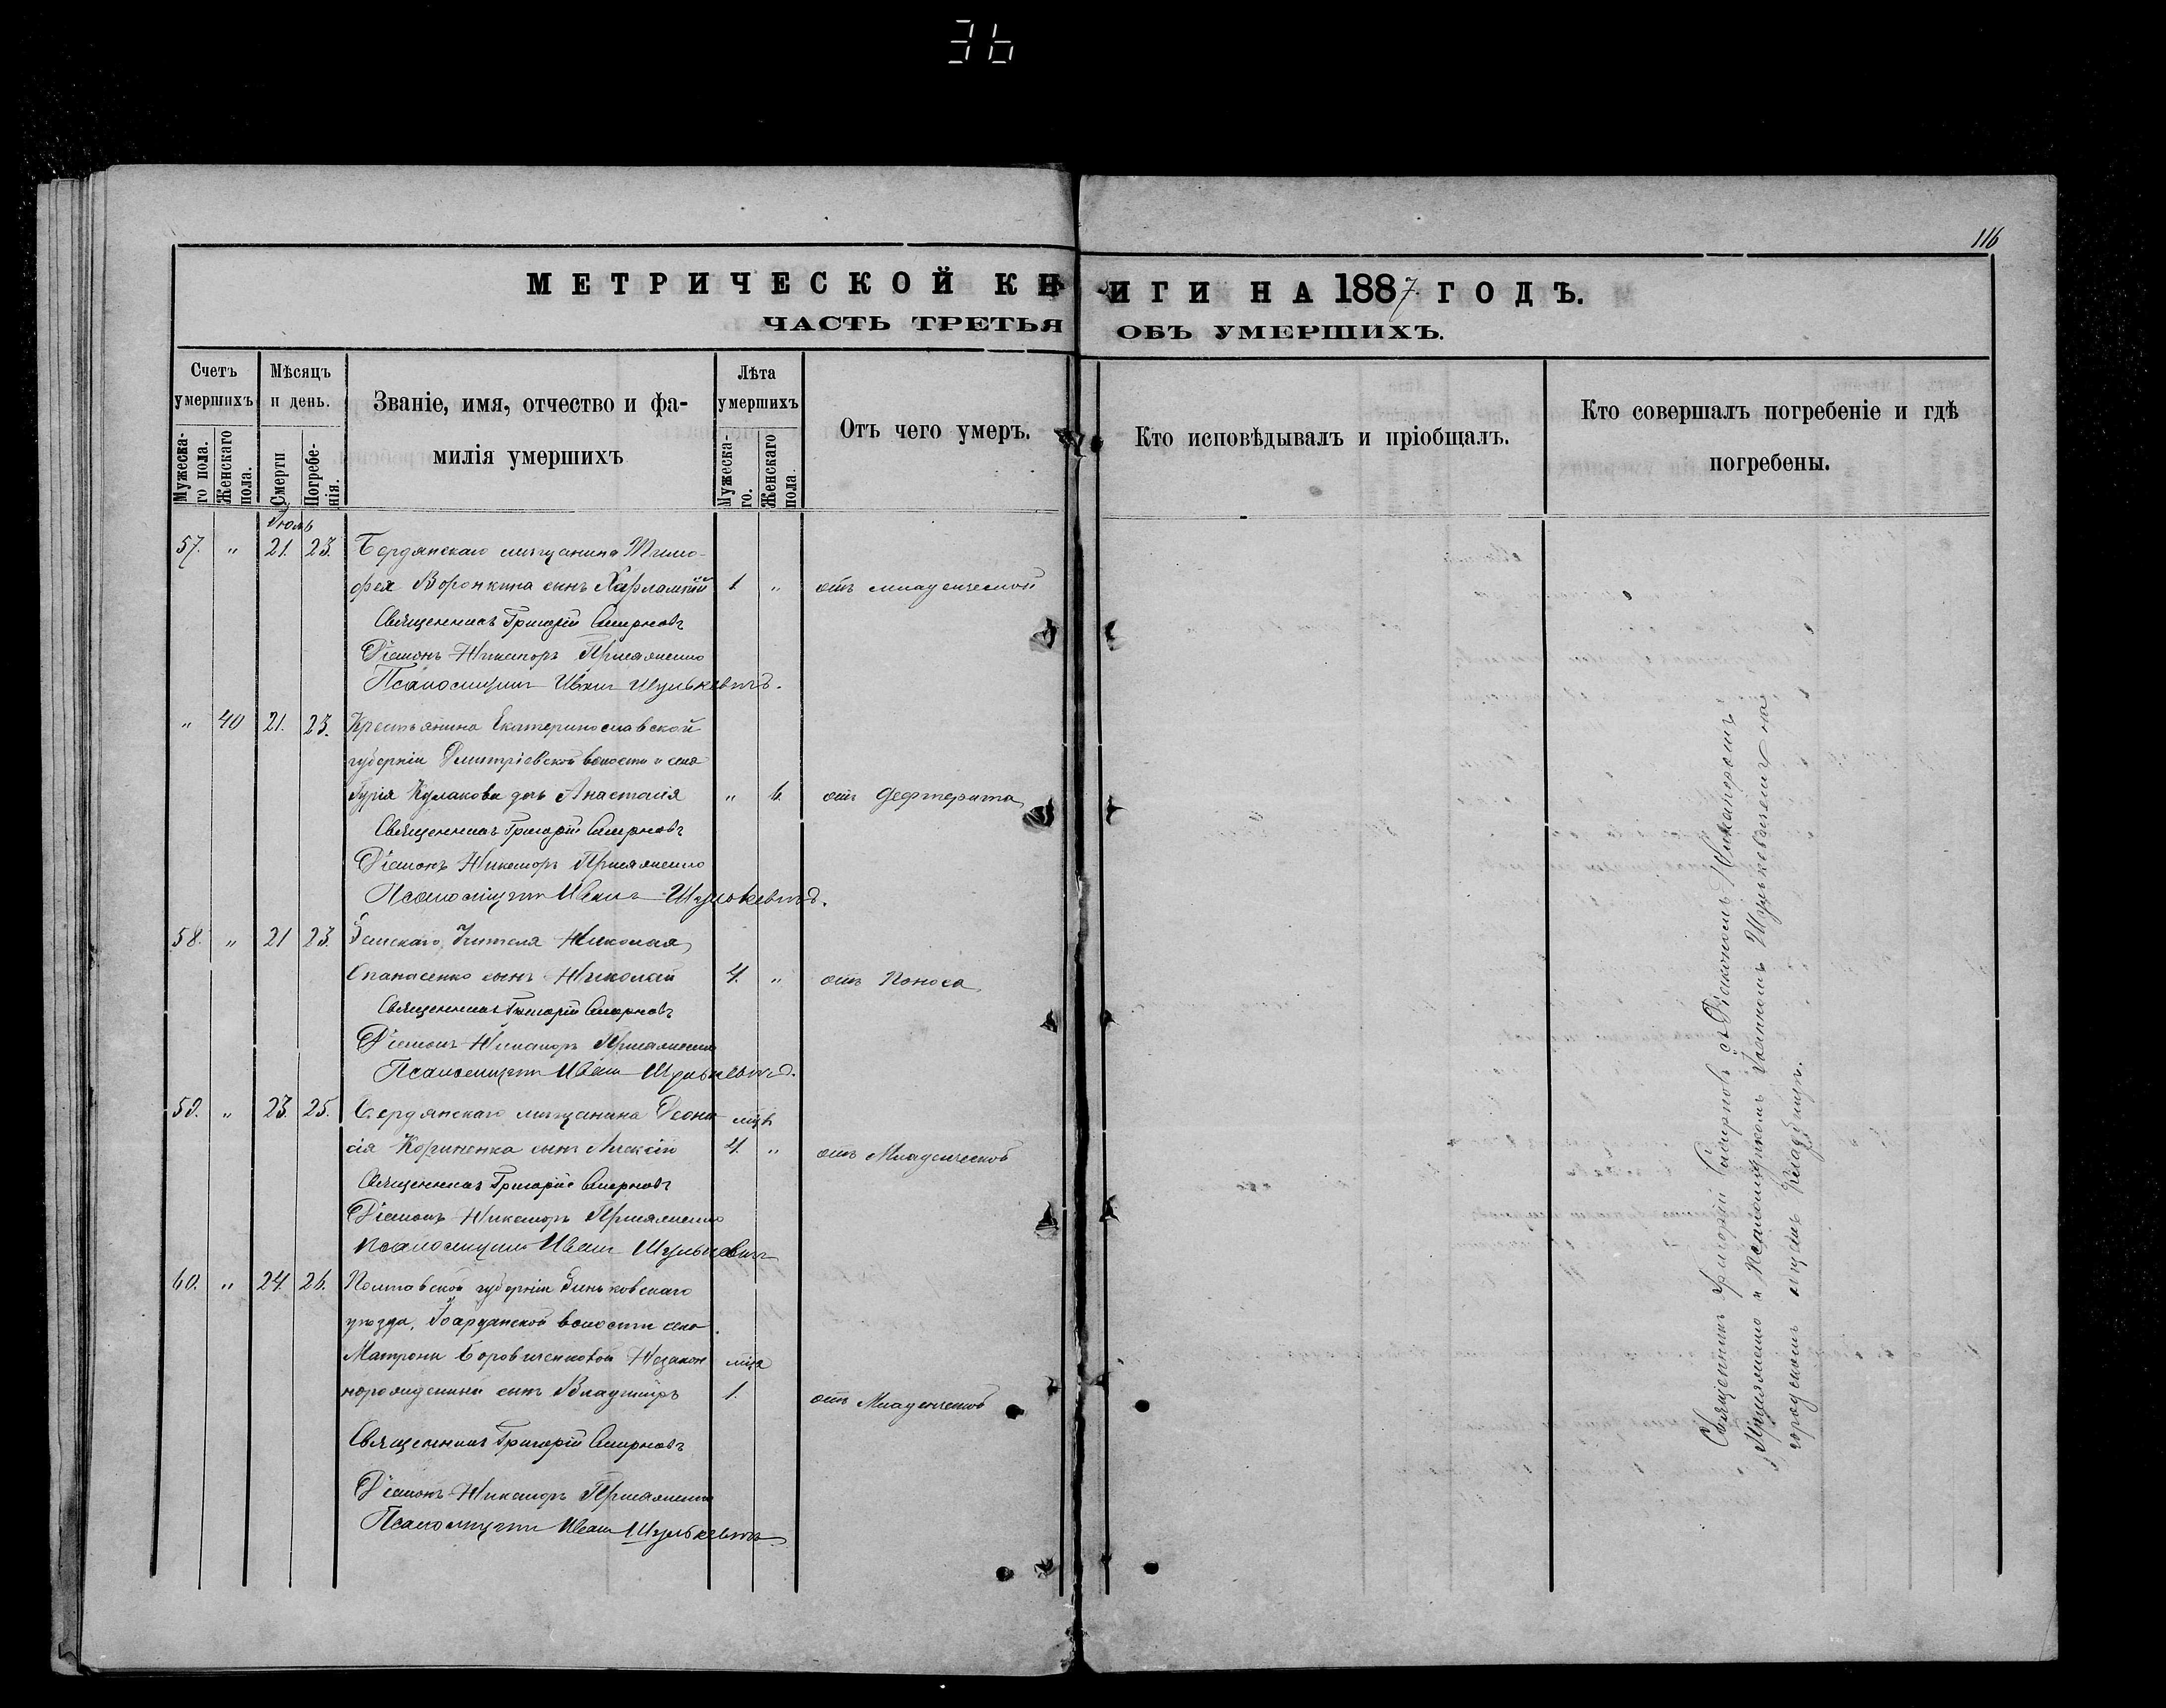 36
116
МЕТРИЧЕСКОЙ КНИГИ НА 1887 ГОДЪ.
ЧАСТЬ ТРЕТЬЯ ОБЪ УМЕРШИХЪ.
Счетъ умершихъ
Мужеска-го пола.
Женскаго пола.
Мѣсяцъ и день.
Смерти
Погребе-нія.
Званіе, имя, отчество и фа-
милія умершихъ
Лѣта умершихъ
Мужеска-го.
Женскаго пола.
Отъ чего умеръ.
Кто исповѣдывалъ и пріобщалъ.
Кто совершалъ погребеніе и гдѣ
погребены.
Іюль
57. " 21. 23. Бердянскаго мѣщанина Тимо-
фея Воронкина сынъ Харлампій 1 " отъ младенческой
Священникъ Григорій Смирновъ
Діаконъ Никаноръ
Псаломщикъ Иванъ Шулькевичъ.
" 40 21. 23. Крестьянина Екатеринославской
губерніи Дмитріевской волости и села
Гурія Кулакова дочь Анастасія " 6. отъ Дефтерита
Священникъ Григорій Смирновъ
Діаконъ Никаноръ
Псаломщикъ Иванъ Шулькевичъ.
58. " 21 23. Земскаго Учителя Николая
Опанасенко сынъ Николай 4. " отъ Поноса
Священникъ Григорій Смирновъ
Діаконъ Никаноръ
Псаломщикъ Иванъ Шулькевичъ.
59. " 23. 25. Бердянскаго мѣщанина Діони-
сія сынъ Алексій 4. " отъ Младенческой
Священникъ Григорій Смирновъ
Діаконъ Никаноръ
Псаломщикъ Иванъ Шулькевичъ
60. " 24. 26. Полтавской губерніи Зиньковскаго
уѣзда, волости села
Матроны Незакон-
норожденный сынъ Владиміръ 1. отъ Младенческой
Священникъ Григорій Смирновъ
Діаконъ Никаноръ
Псаломщикъ Иванъ Шулькевичъ
Священникъ Григорій Смирновъ съ Діакономъ Никаноромъ
и Псаломщикомъ Іоанномъ Шулькевичемъ на
городскомъ кладбищѣ.